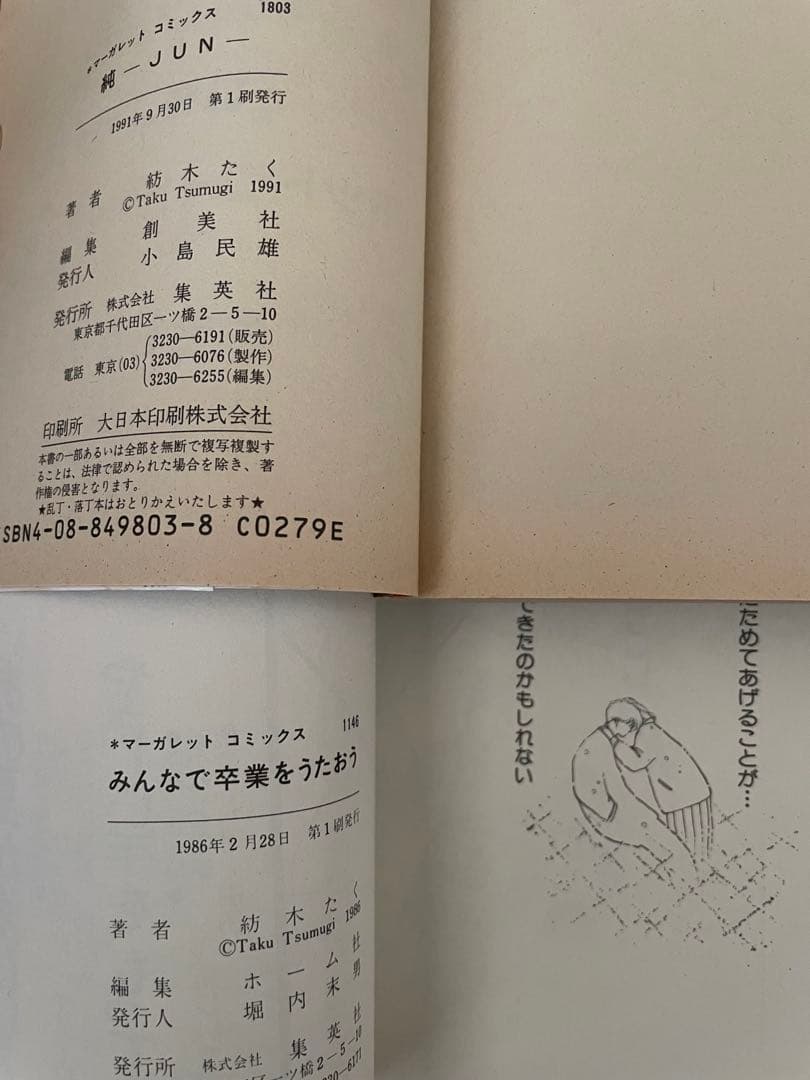 1803
*マーガレット コミックス
純—JUN—
1991年9月30日 第1刷発行
著者 紡木たく
©Taku Tsumugi 1991
編集 創美社
発行人 小島民雄
発行所 株式会社 集英社
東京都千代田区一ツ橋2—5—10
電話 東京(03)
3230—6191(販売)
3230—6076(製作)
3230—6255(編集)
印刷所 大日本印刷株式会社
本書の一部あるいは全部を無断で複写複製す
ることは、法律で認められた場合を除き、著
作権の侵害となります。
★乱丁・落丁本はおとりかえいたします★
SBN4-08-849803-8 C0279E
ためてあげることが…
きたのかもしれない
1146
*マーガレット コミックス
みんなで卒業をうたおう
1986年2月28日 第1刷発行
著者 紡木たく
©Taku Tsumugi 1986
編集 ホーム社
発行人 堀内末男
発行所 株式会社 集英社
一ツ橋2—5—10
—6171